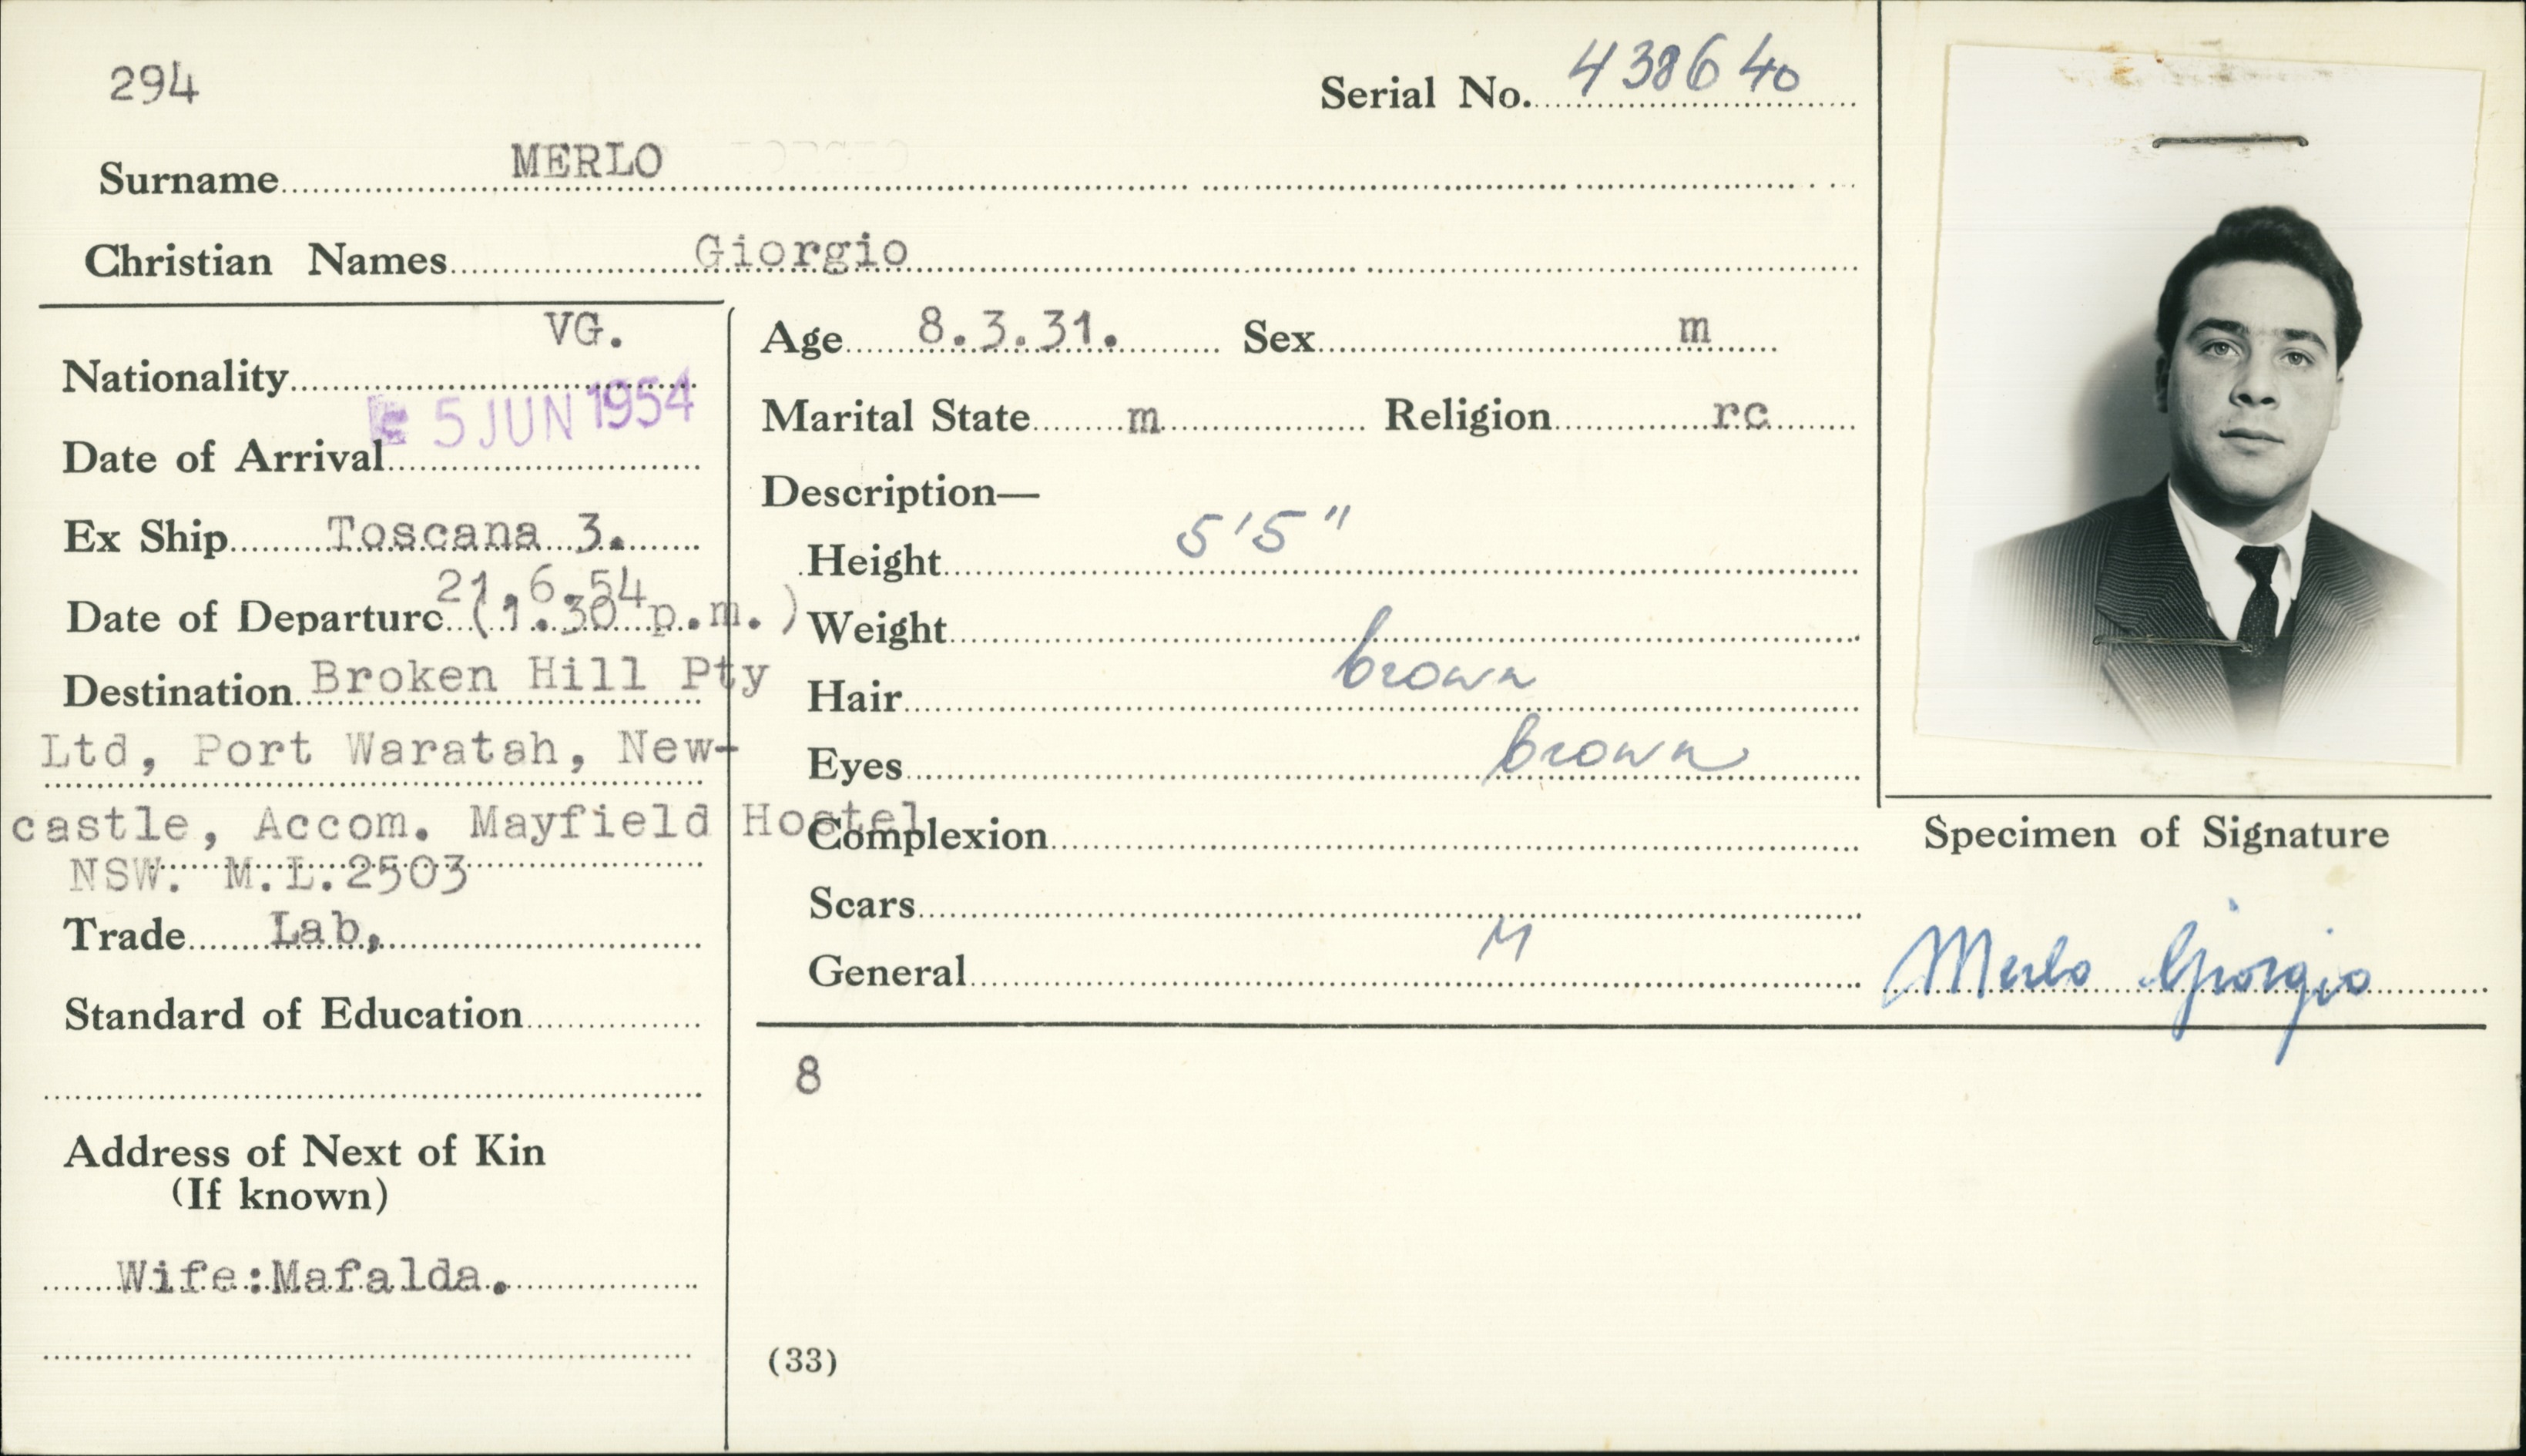 294
Serial No. 438640
Surname MERLO
Christian Names Giorgio
Nationality VG.
Date of Arrival 5 JUN 1954
Ex Ship Toscana 3.
Date of Departure 21.6.54 (1.30 p.m.)
Destination Broken Hill Pty
Ltd, Port Waratah, New-
castle, Accom. Mayfield Hostel
NSW. M.L.2503
Trade Lab,
Standard of Education
Address of Next of Kin
(If known)
Wife:Mafalda.
Age 8.3.31. Sex m
Marital State m Religion rc
Description—
Height 5'5"
Weight
Hair brown
Eyes brown
Complexion
Scars
General M
8
(33)
Specimen of Signature
Merlo Giorgio